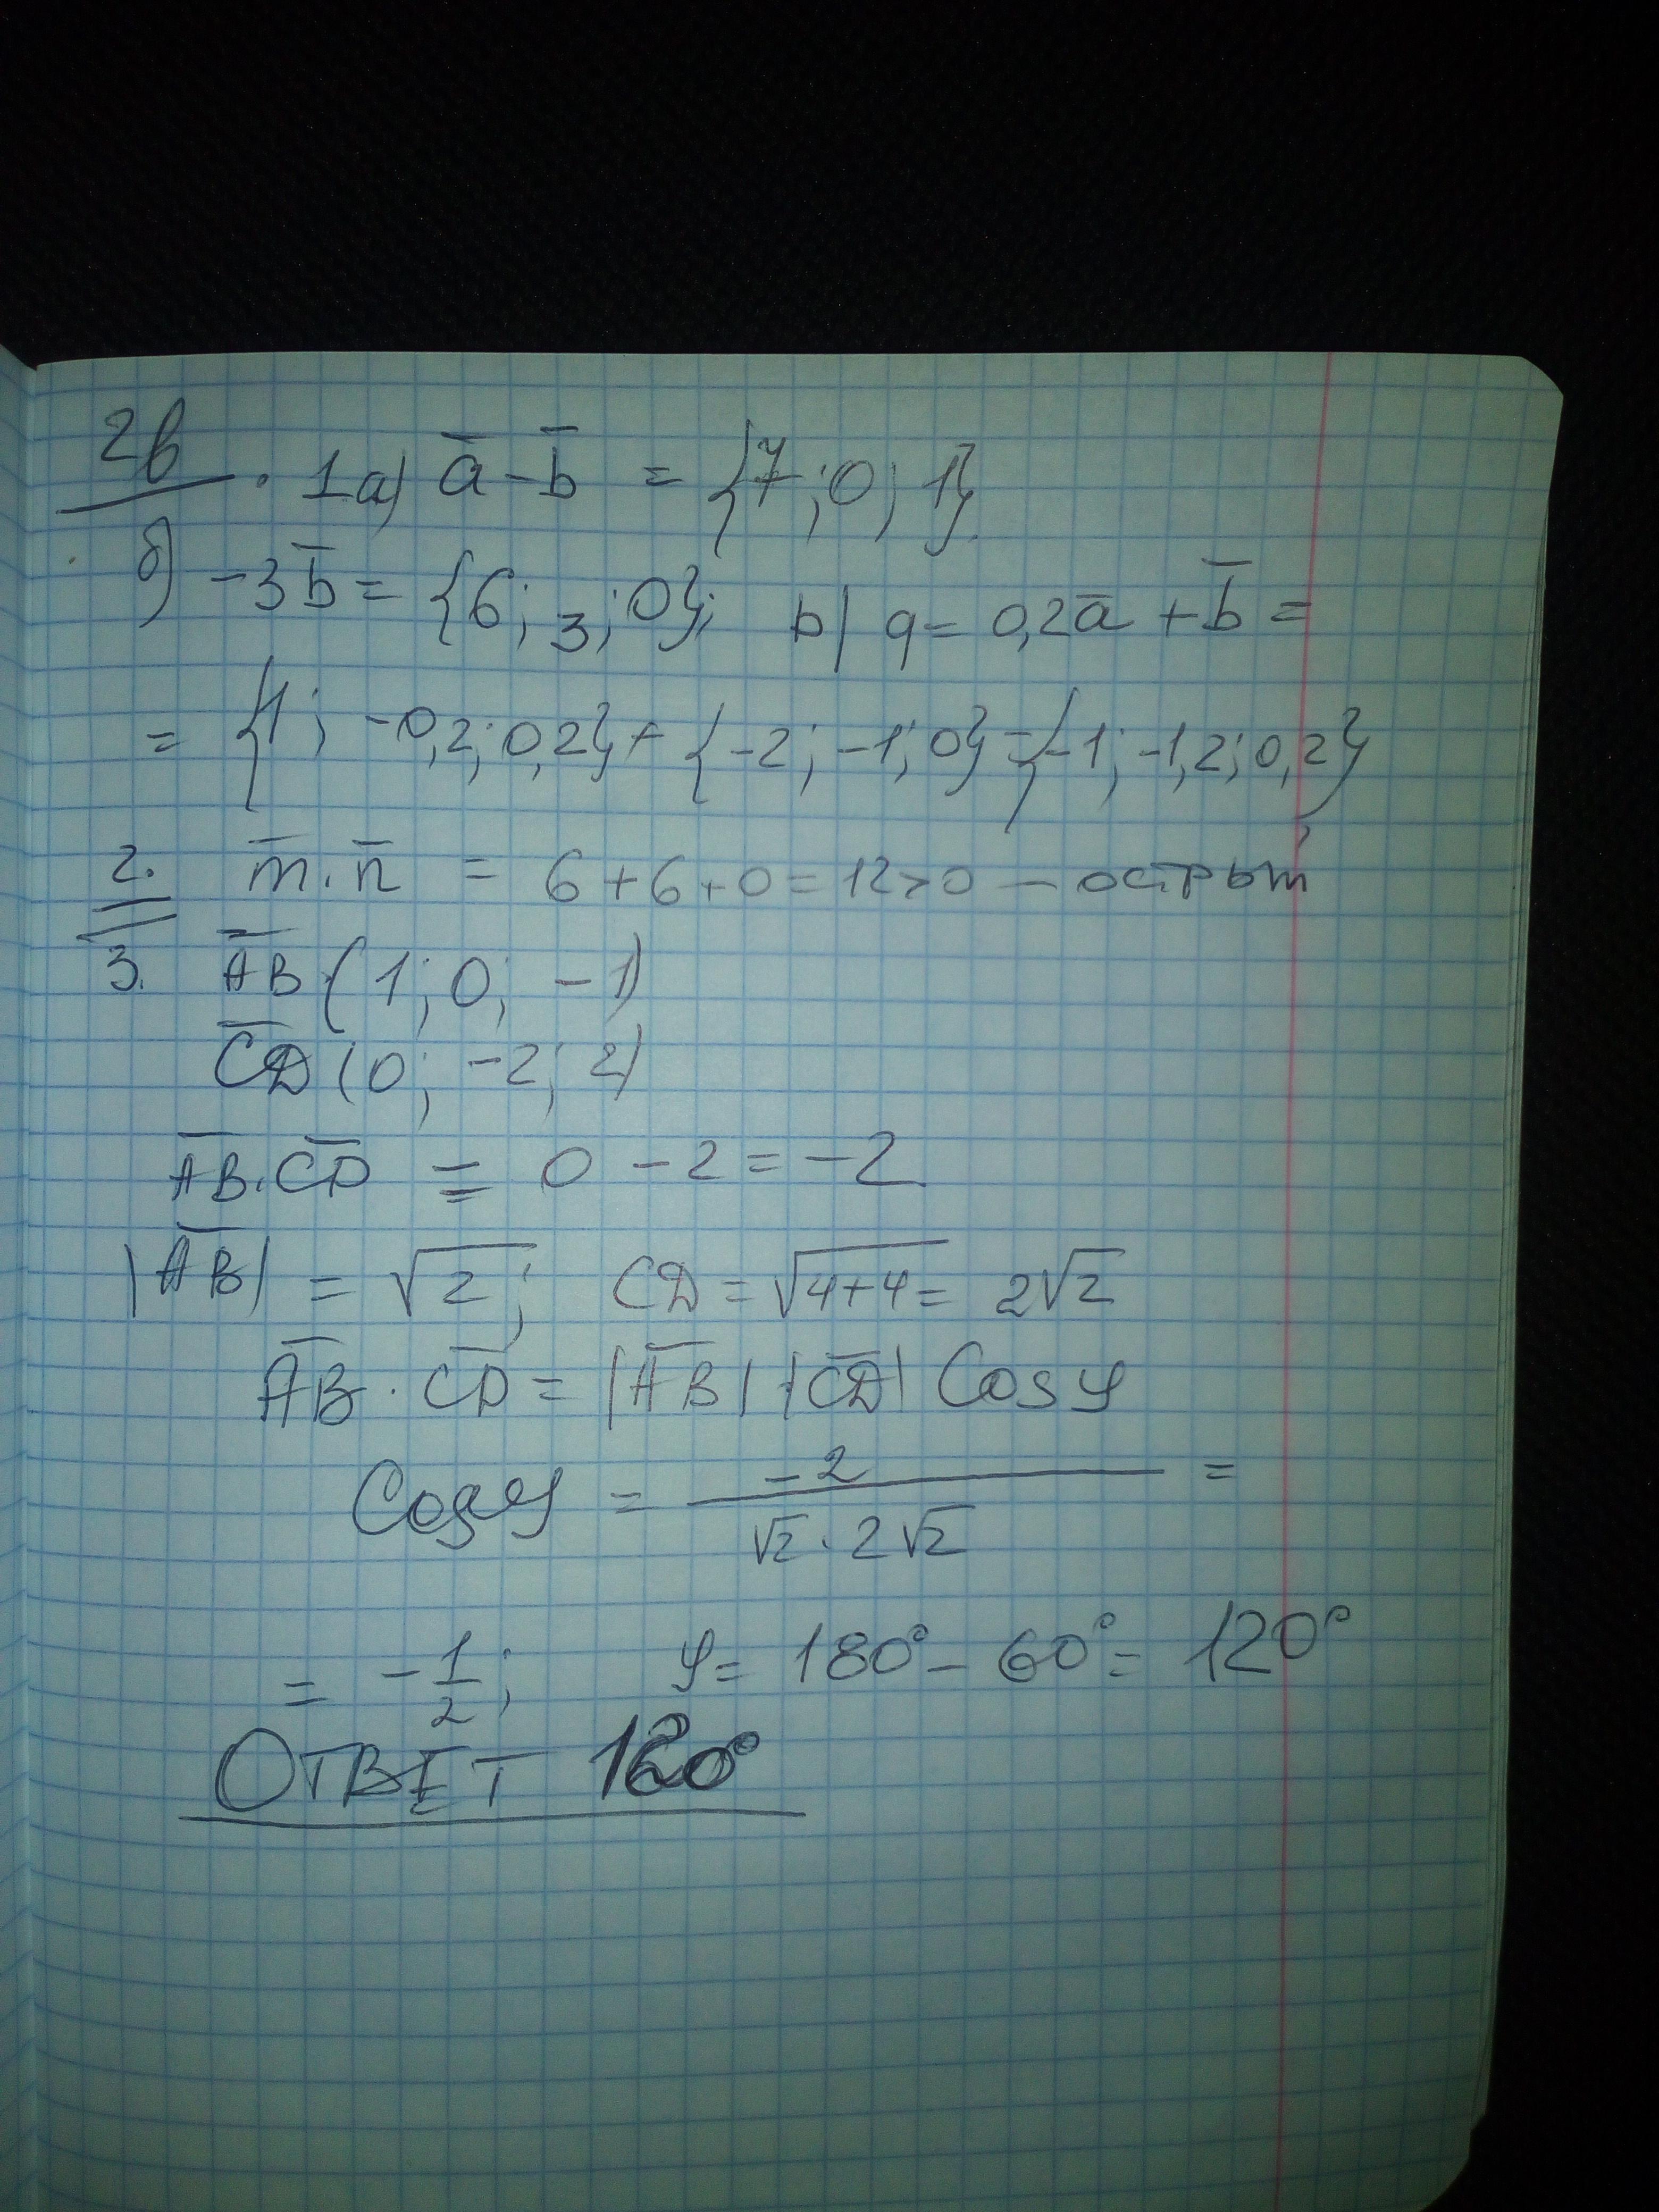 2в. 1 а) a̅ - b̅ = {7; 0; 1}.
б) -3b̅ = {6; 3; 0}; в) q = 0,2a̅ + b̅ =
= {1; -0,2; 0,2} + {-2; -1; 0} = {-1; -1,2; 0,2}
2. m̅ · n̅ = 6 + 6 + 0 = 12 > 0 — острый
3. A̅B̅ (1; 0; -1)
C̅D̅ (0; -2; 2)
A̅B̅ · C̅D̅ = 0 - 2 = -2
|A̅B̅| = √2; CD = √4+4 = 2√2
A̅B̅ · C̅D̅ = |A̅B̅| · |C̅D̅| Cos φ
Cos φ = -2 / √2 · 2√2 =
= -1/2; φ = 180° - 60° = 120°
ОТВЕТ 120°